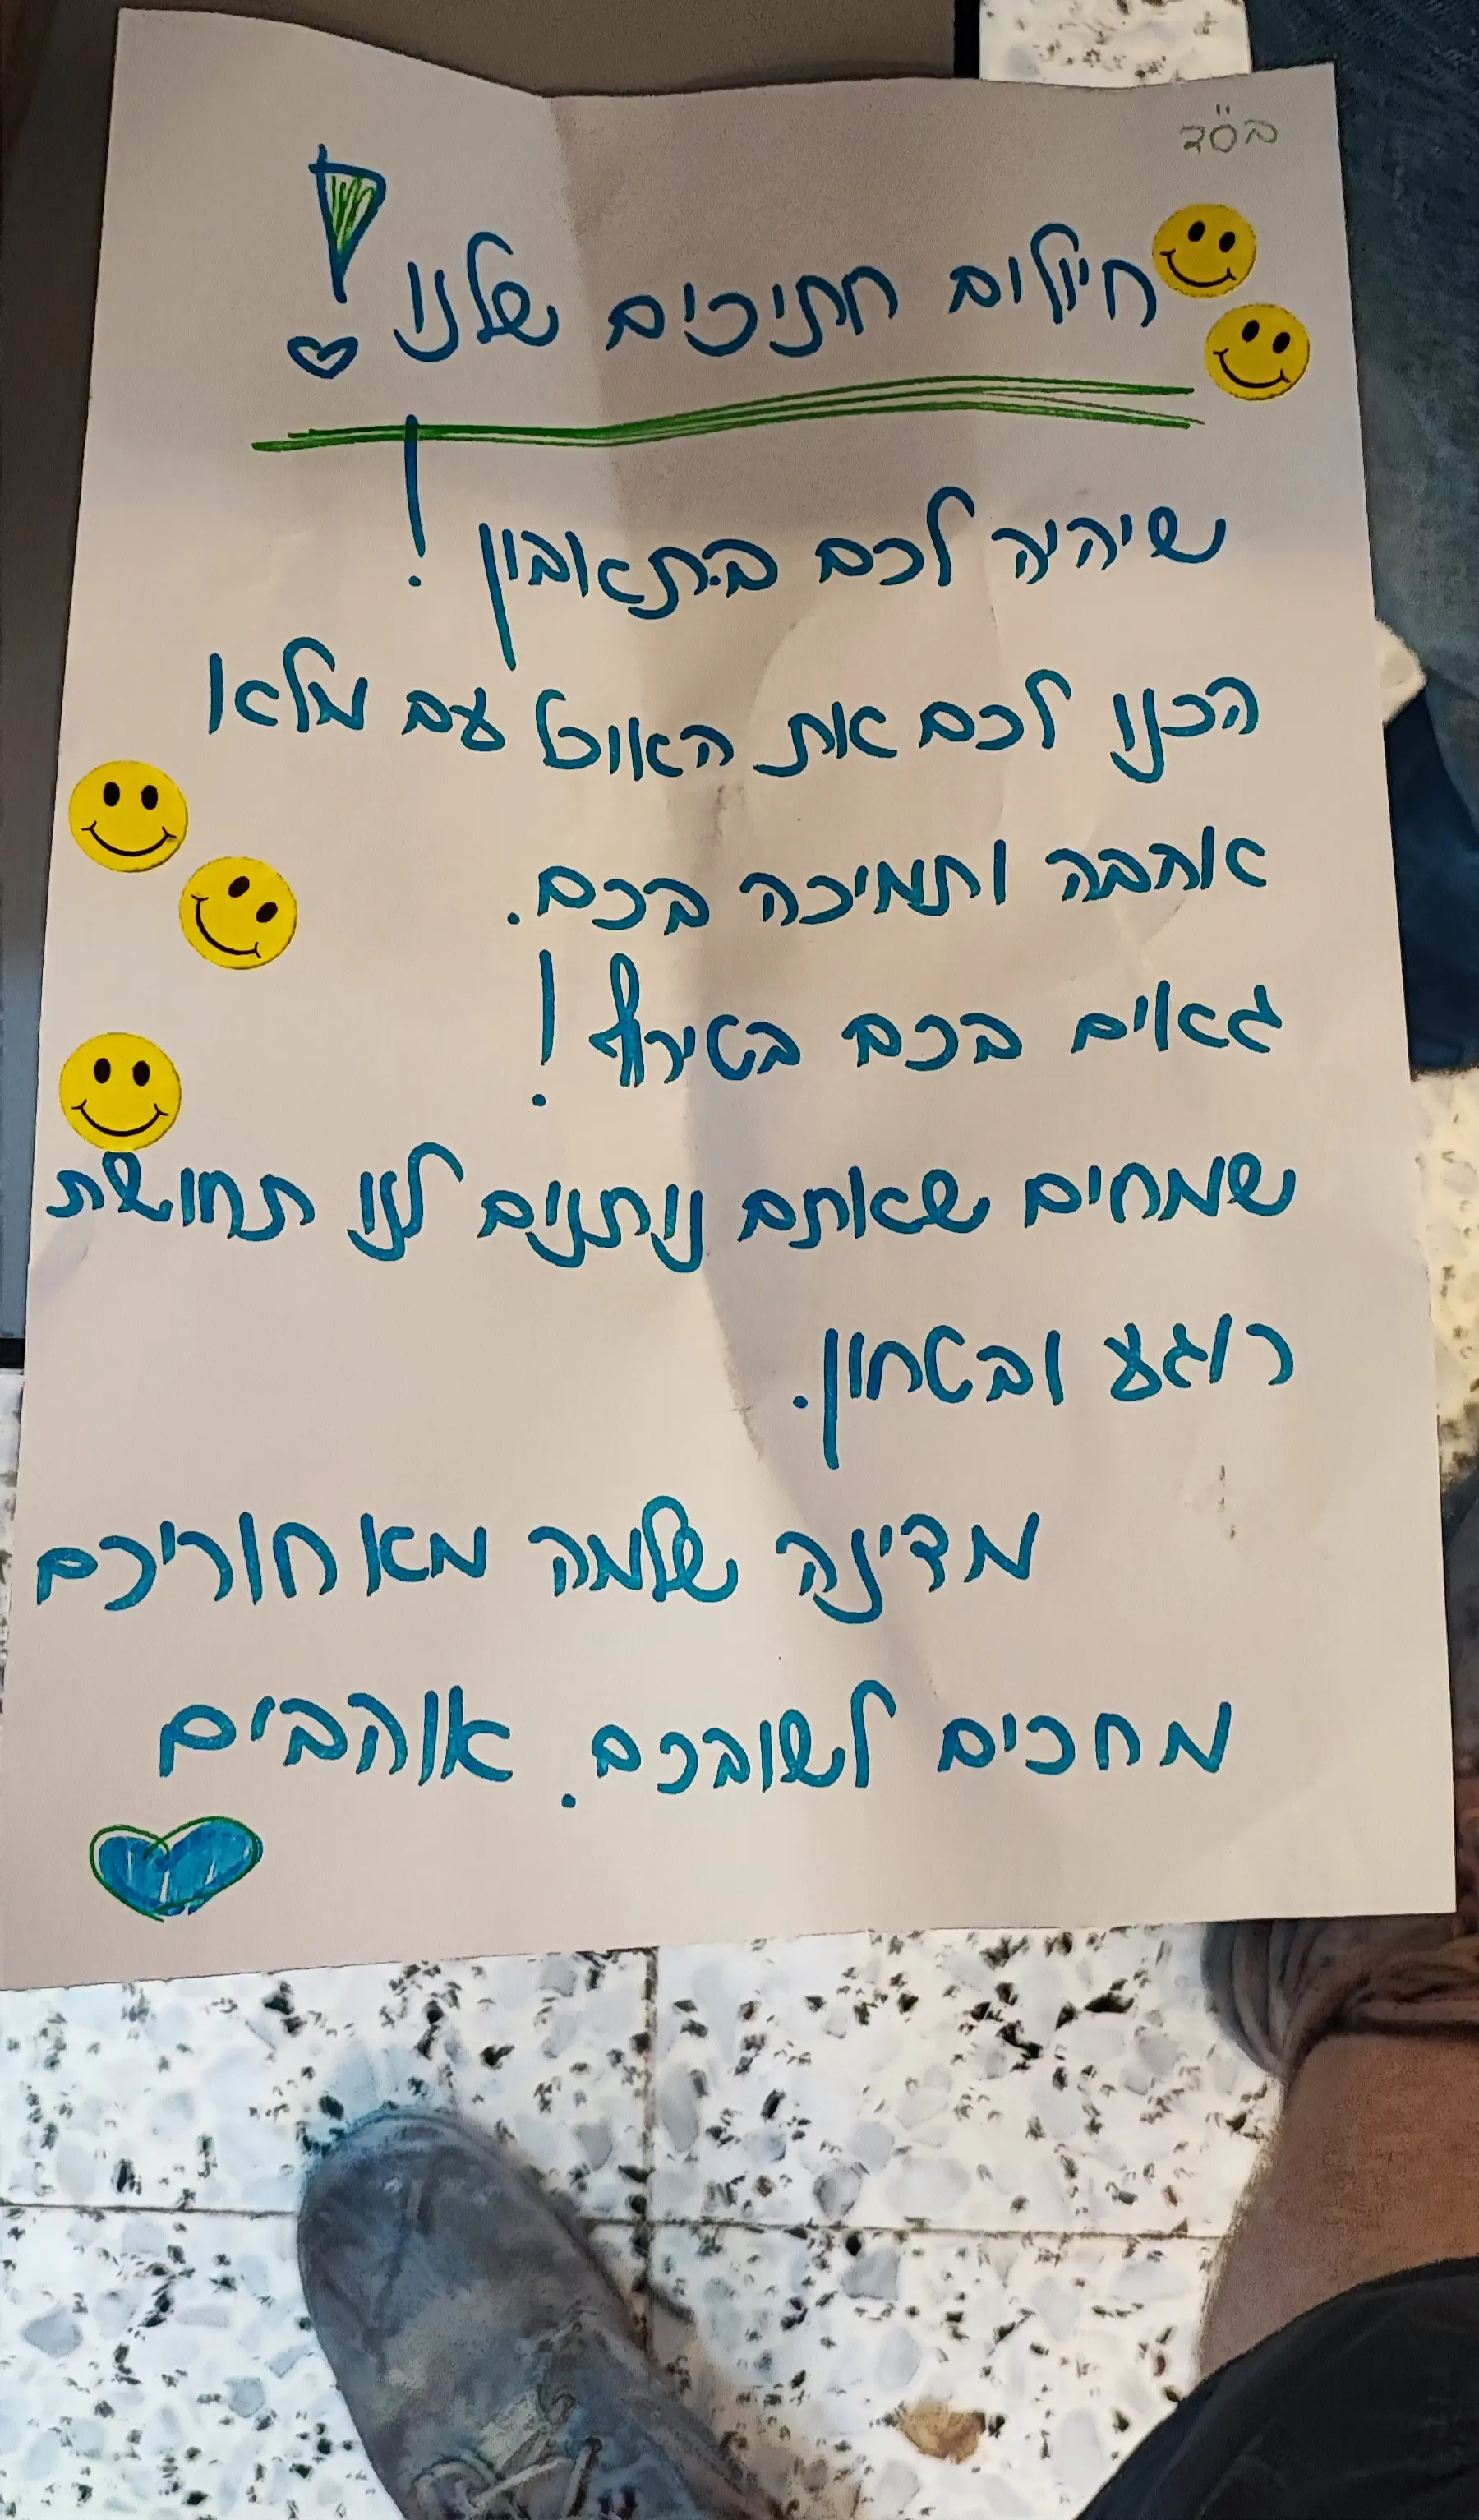 בס"ד
חיילים חתיכים שלנו!
שיהיה לכם בתאבון!
הכנו לכם את האוכל עם מלא
אהבה ותמיכה בכם.
גאים בכם בטירוף!
שמחים שאתם נותנים לנו תחושת
רוגע ובטחון.
מדינה שלמה מאחוריכם
מחכים לשובכם. אוהבים